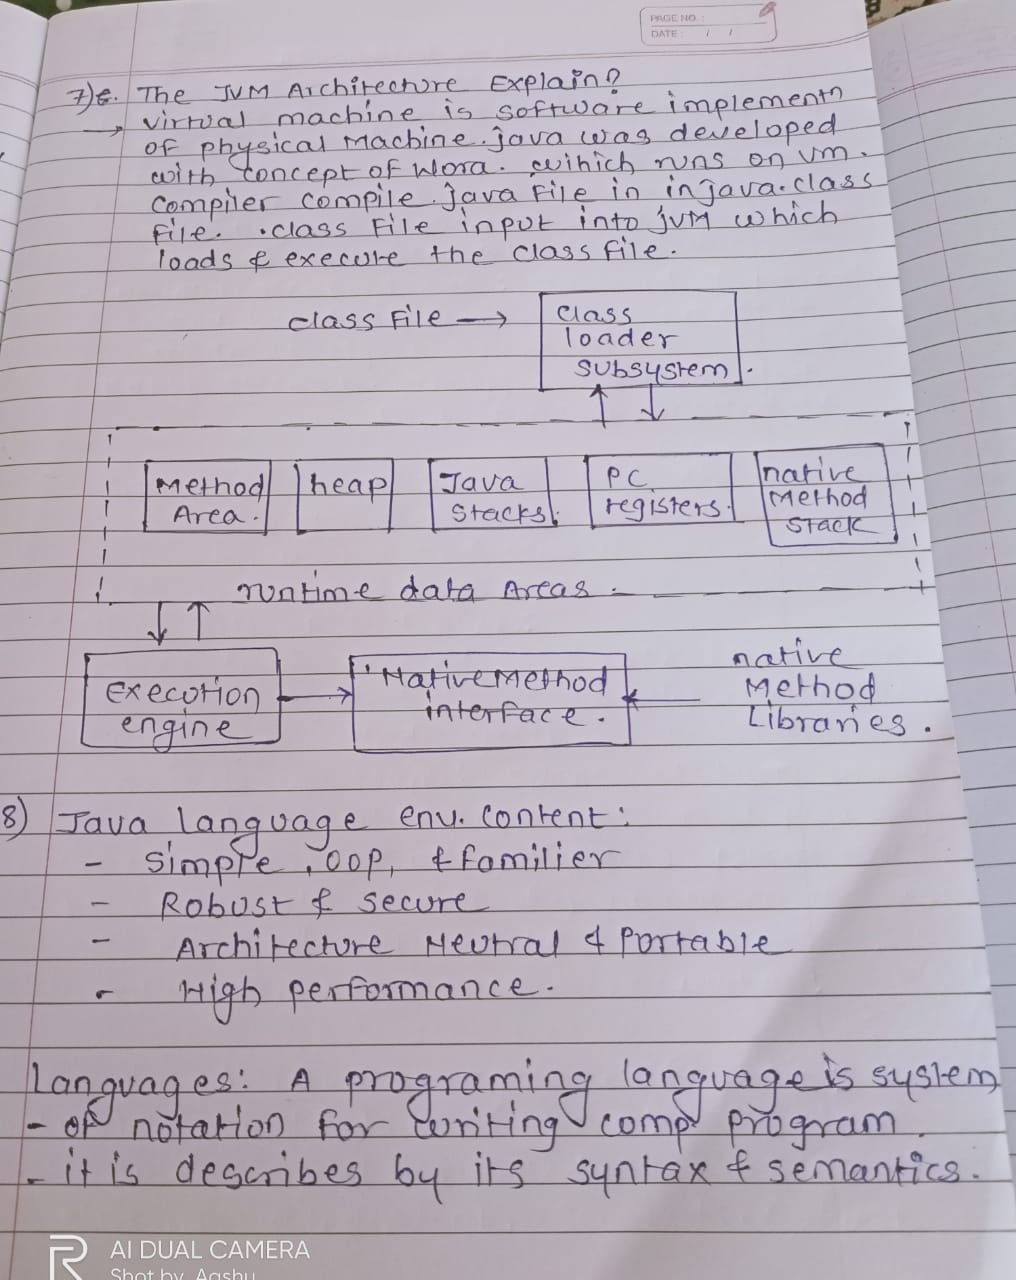 PAGE NO. :
DATE : / /
7)8. The JVM Architecture Explain?
→ virtual machine is software implementn
of physical Machine. java was developed
with concept of Wora. wihich runs on vm.
Compiler compile .java File in in java.class
file. .class File input into jvm which
loads & execute the class file.
class File →
class
loader
subsystem.
Method
Area.
heap
Java
Stacks.
PC
registers.
native
Method
Stack
runtime data Areas
Execution
engine
Native Method
interface.
native
Method
Libraries.
8) Java language env. content:
- Simple, OOP, & familier
- Robust & secure
- Architecture Neutral & Portable
- High performance.
Languages: A programing language is system
- of notation for writing comp program.
- it is describes by its syntax & semantics.
AI DUAL CAMERA
Shot by Aashu